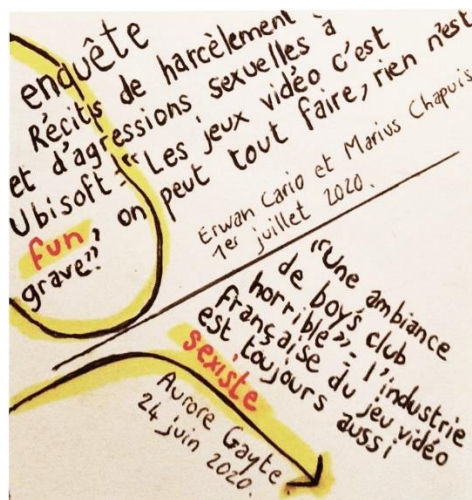 enquête
Récits de harcèlement
et d'agressions sexuelles à
Ubisoft : "Les jeux vidéo c'est
fun, on peut tout faire, rien n'est
grave."
Erwan Cario et Marius Chapuis
1er juillet 2020.
"Une ambiance
de boy's club
horrible" - l'industrie
française du jeu vidéo
est toujours aussi
sexiste
Aurore Gayte
24 juin 2020.